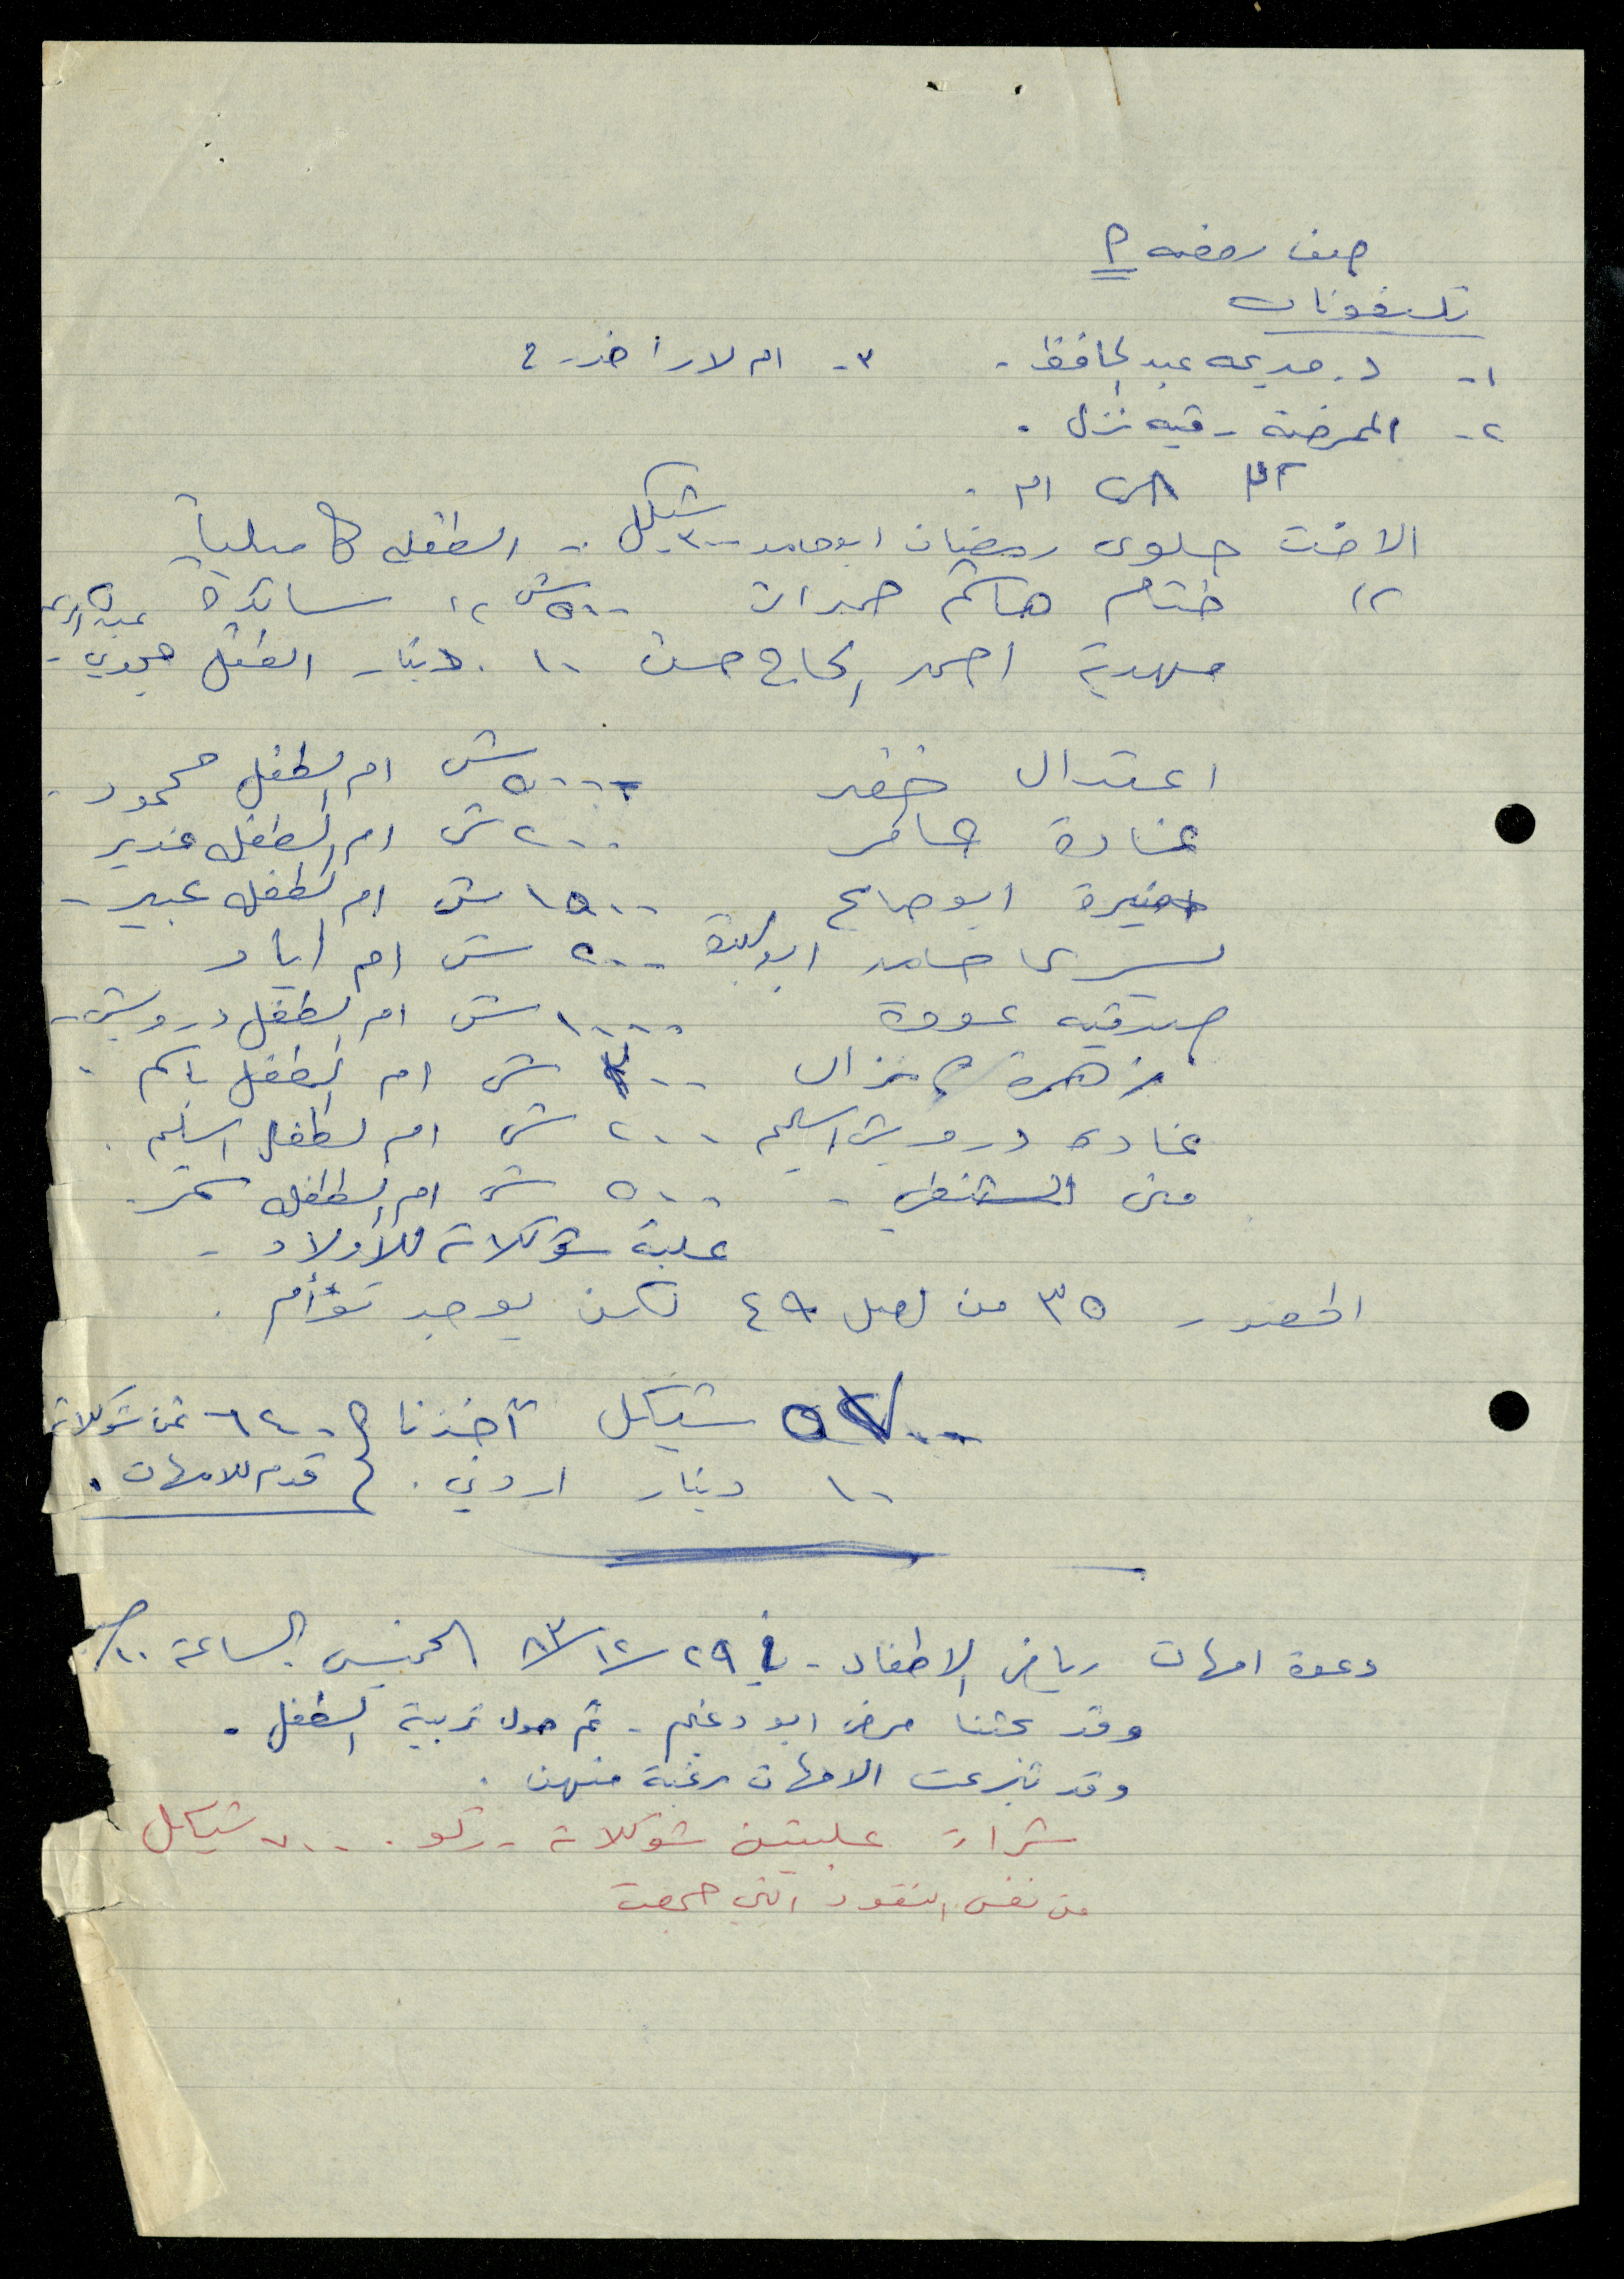 صف روضه م
تلفونات
١- د. مديحه عبد الحافظ - ٣- ام لارا خدر
٢- الممرضة رقيه نزال .
ام .
الاخت سلوى رمضان ابو حامد ٣٠٠ شيكل - الطفل كاميليا
١٢ ختام هاشم حمدان ٥٠٠ ش
مهدية احمد الحاج حسن ١٠ دينار الطفل مجدي -
اعتدال خضر ٥٠٠ ش ام الطفل محمود .
غادة ٢٠٠ ش ام الطفل غدير
ابو صالح ١٥٠٠ ش ام الطفل عبير -
يسرى حامد ابو لبدة ٥٠٠ ش ام اياد
صدقيه عودة ١٠٠٠ ش ام الطفل درويش -
زهرة نزال ش ام الطفل باسم .
غاده درويش اسليم ٢٠٠ ش ام الطفل اسليم .
منى ٥٠٠ ش ام الطفل سمر .
علبة شوكلاته للأولاد -
الحضور ٣٥ من اصل ٤٩ لكن يوجد توأم .
شيكل أخذنا ٦٤٠ ثمن شوكلاته
١٠ دينار اردني . قدم للامهات .
دعوة امهات رياض الاطفال - في ٢٩/١٢/٨٣ الخميس الساعة ١٠ ص
وقد بحثنا مرض ابو دغيم - ثم حول تربية الطفل .
وقد تبرعت الامهات رغبة منهن .
شراء علبتين شوكلاته ٧٠٠ شيكل
من نفس النقود التي جمعت